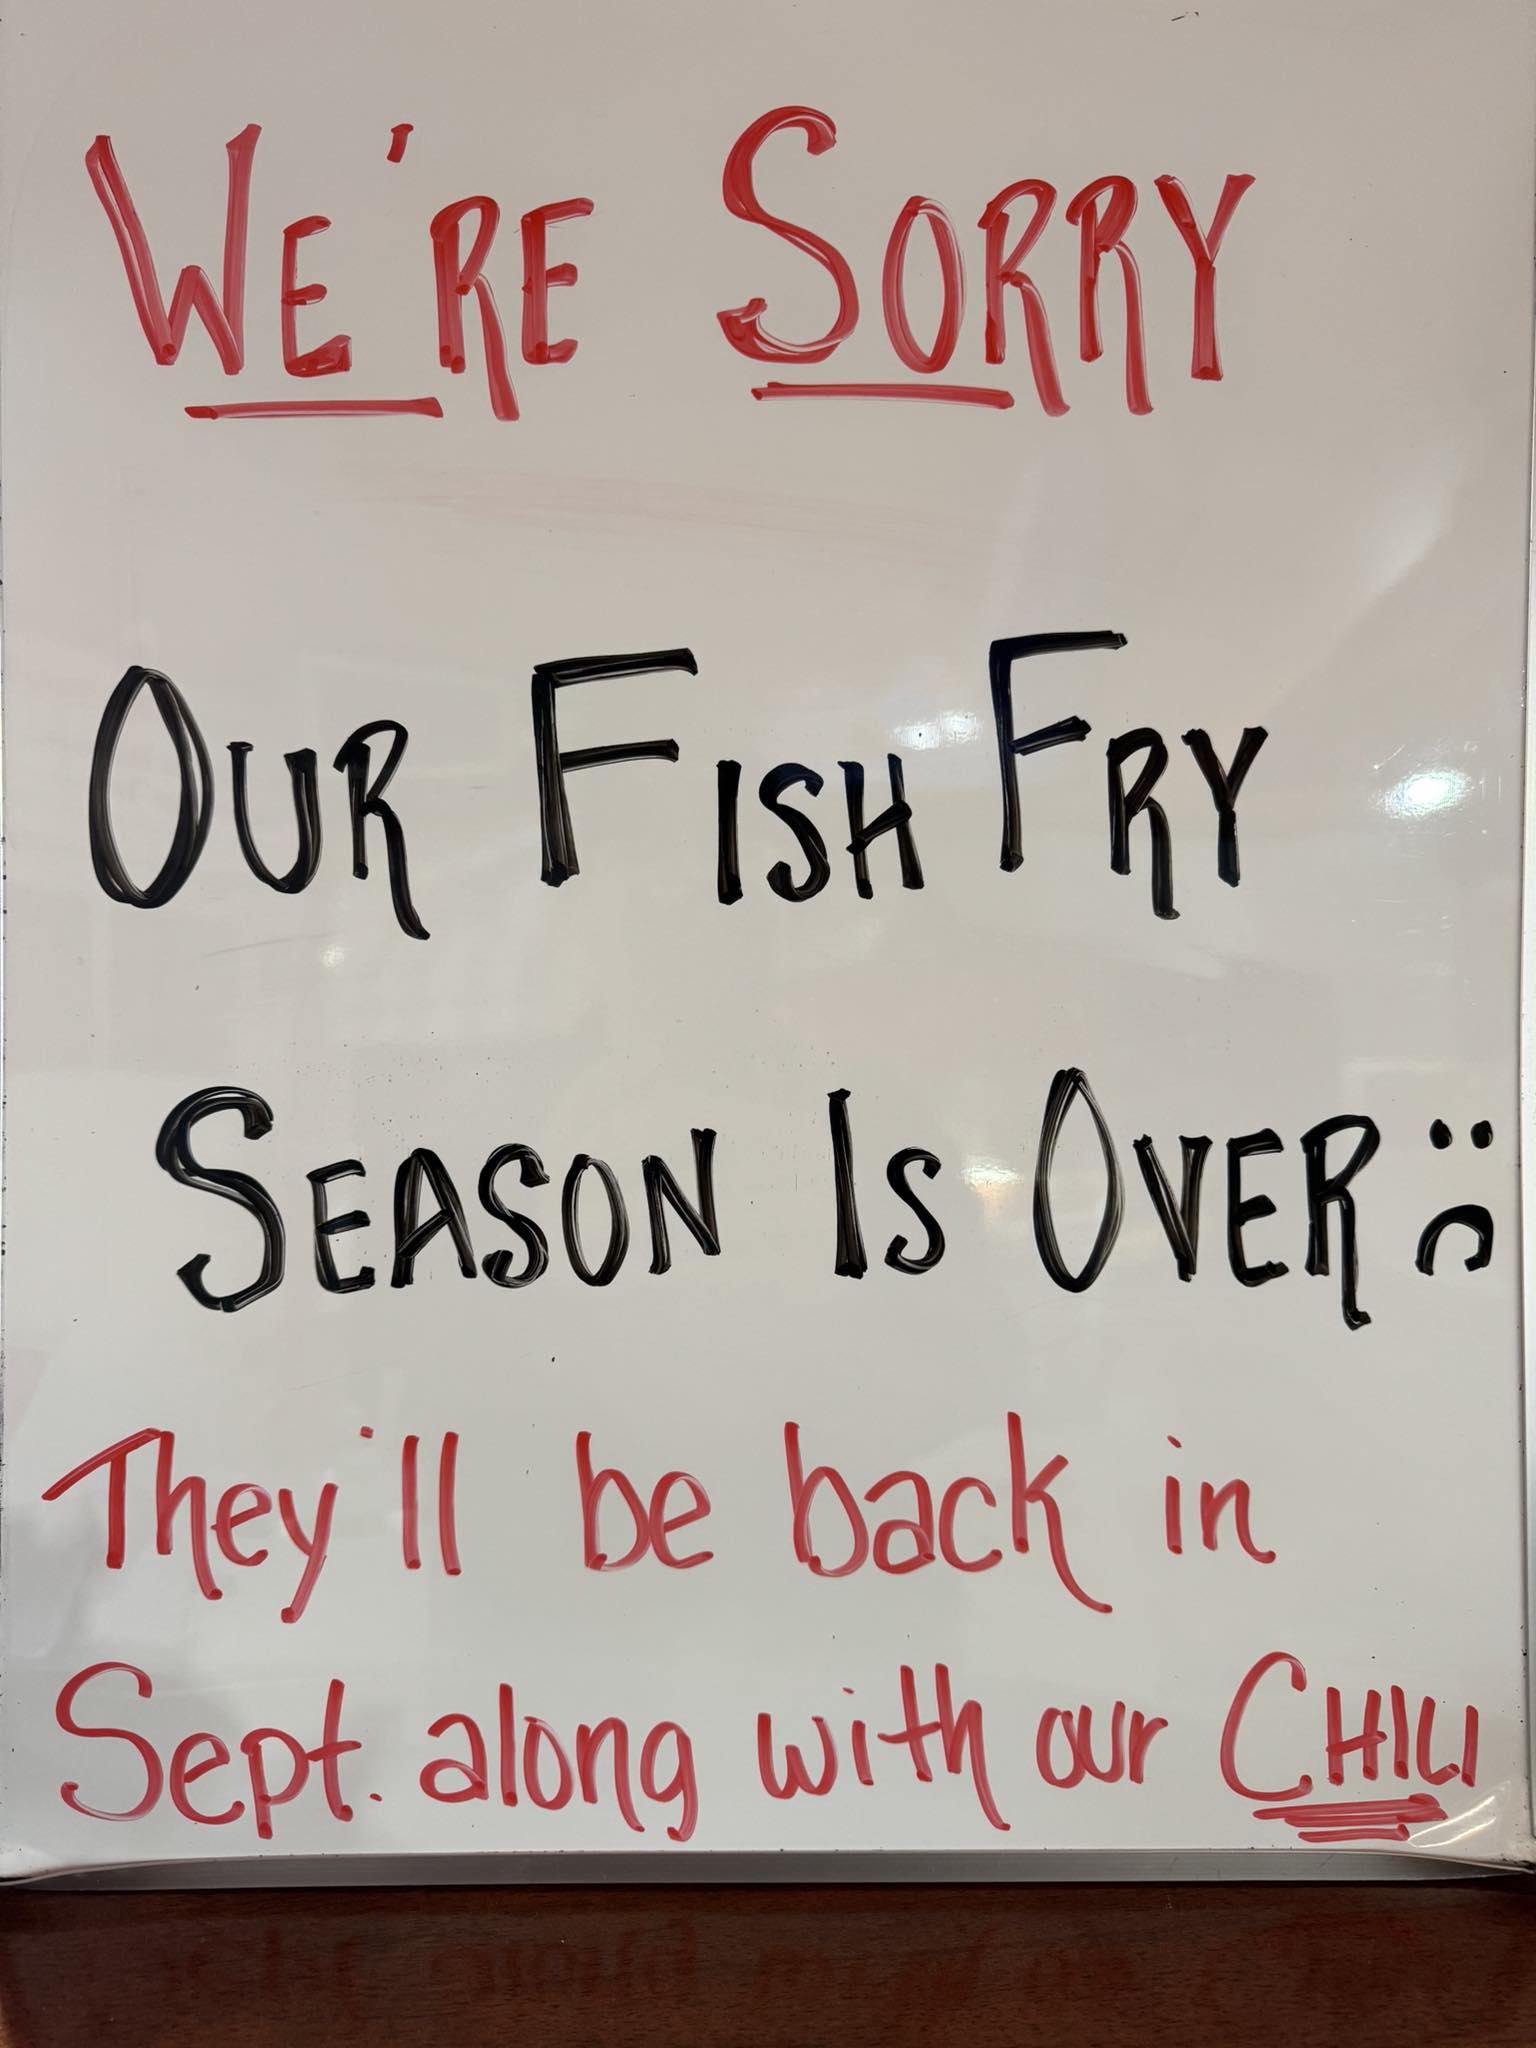 WE'RE SORRY
OUR FISH FRY
SEASON IS OVER :(
They'll be back in
Sept. along with our CHILI